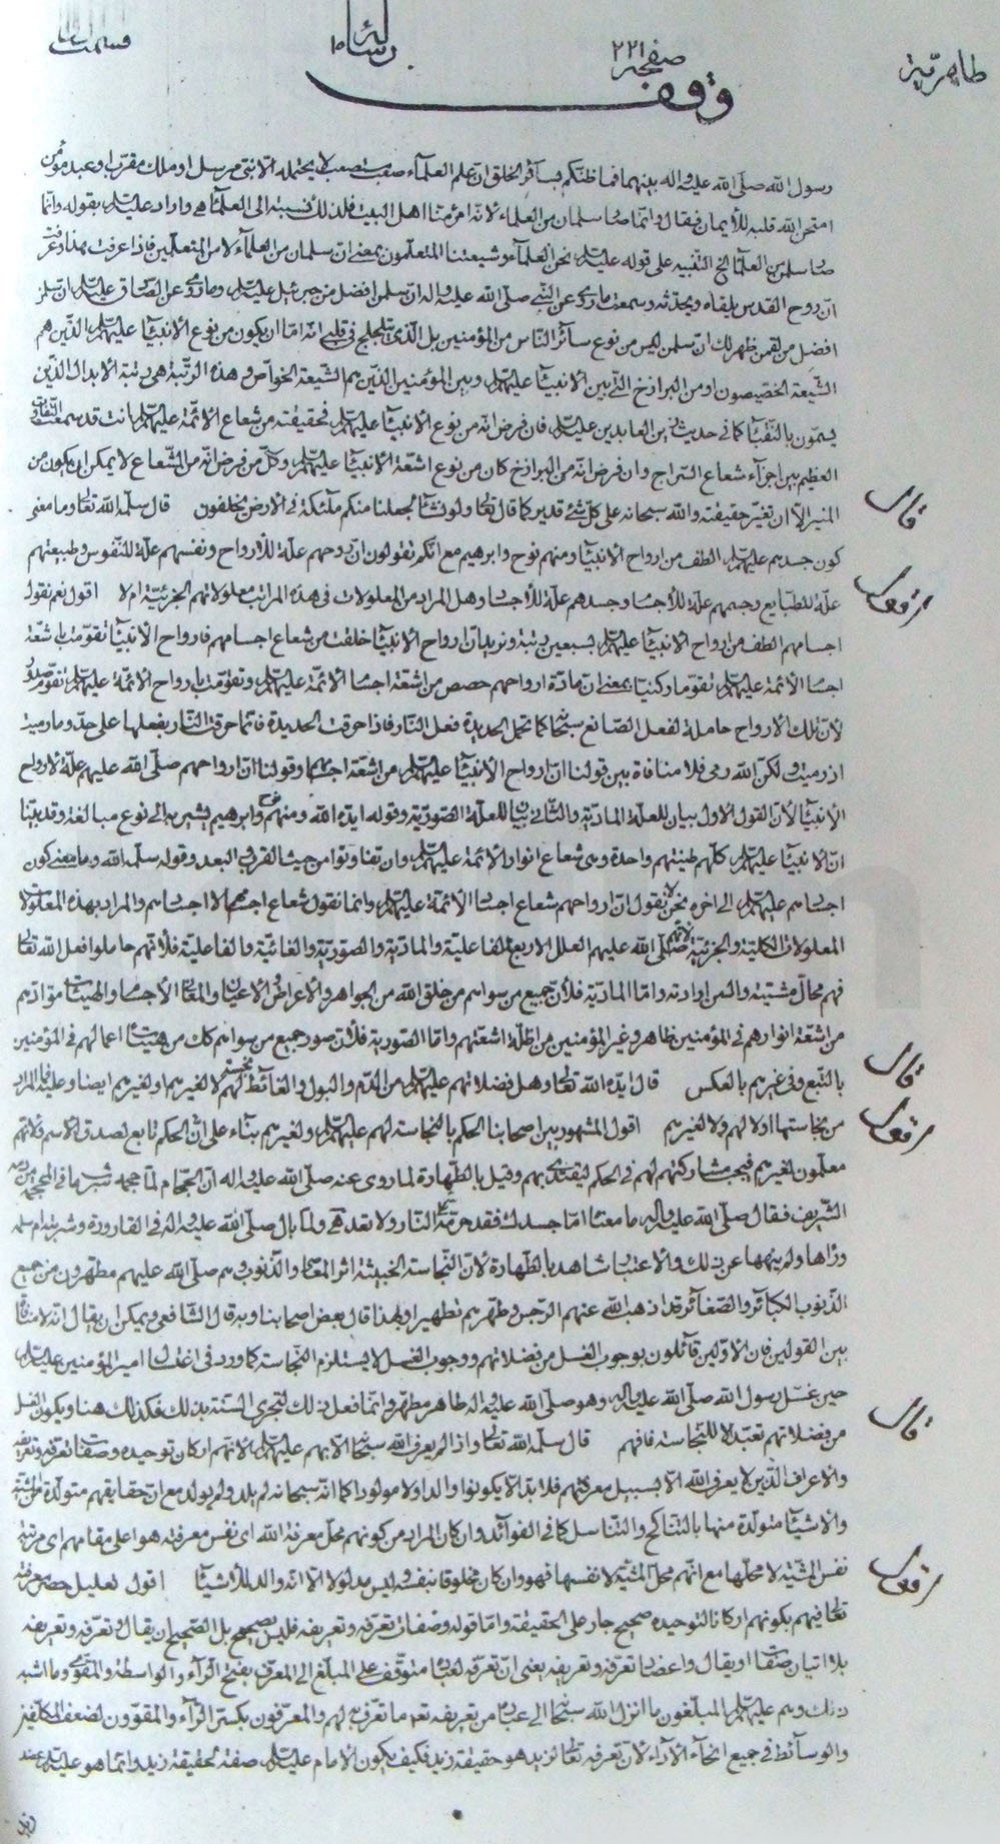 طاهريّة صفحه ٢٢١ رساله ١٥ قسمت
وقف
رسول الله صلّى الله عليه واله بينهما فما ظنّكم بسائر الخلق انّ علم العلمآء صعب مستصعب لا يحتمله الّا نبىّ مرسل او ملك مقرّب او عبد مؤمن
امتحن الله قلبه للأيمان فقال وانّما صار سلمان من العلماء لانّه امرؤ منّا اهل البيت فلذلك نسبته الى العلمآء واراد عليه السلم بقوله وانّما
صار سلمان من العلمآء الخ التنبيه على قوله عليه السلم نحن العلمآء وشيعتنا المتعلّمون بمعنى انّ سلمان من العلمآء لا من المتعلّمين فاذا عرفت هذا وعرفت
انّ روح القدس يلقاه ويحدّثه وسمعت ما روى عن النّبى صلّى الله عليه واله انّ سلمن افضل من جبرئيل عليه السلم وما روى عن الصّادق عليه السلم انّ سلمن
افضل من لقمن ظهر لك انّ سلمن ليس من نوع سائر النّاس من المؤمنين بل الّذى يتلجلج فى قلبى انّه امّا ان يكون من نوع الأنبيآء عليهم السلم الّذين هم
الشّيعة الخصّيصون او من البرازخ الّتى بين الأنبيآء عليهم السلم وبين المؤمنين الّذين هم الشيعة الخواصّ وهذه الرّتبة هى رتبة الأبدال الّذين
يسمّون بالنّقبآء كما فى حديث زين العابدين عليه السلم فان فرض انّه من نوع الأنبيآء عليهم السلم فحقيقته من شعاع الائمّة عليهم السلم وانت قد سمعت التّفاوت
العظيم بين اجزآء شعاع السّراج وان فرض انّه من البرازخ كان من نوع اشعّة الأنبيآء عليهم السلم وكلّ من فرض انّه من الشّعاع لا يمكن ان يكون من
المنير الّا ان تغيّر حقيقته والله سبحانه على كلّ شئ قدير كما قال تعالى ولو نشآء لجعلنا منكم ملئكة فى الأرض يخلفون قال سلّمه الله تعالى وما معنى
كون جسدهم عليهم السلم الطف من ارواح الأنبيآء ومنهم نوح وابرهيم مع انّكم تقولون انّ روحهم علّة للأرواح ونفسهم علّة للنّفوس وطبيعتهم
علّة للطّبايع وجسمهم علّة للأجسام وجسدهم علّة للأجساد وهل المراد من المعلولات فى هذه المراتب معلولاتهم الجزئيّة ام لا اقول نعم نقول
اجسامهم الطف من ارواح الأنبيآء عليهم السلم بسبعين رتبة ونريد انّ ارواح الأنبيآء خلقت من شعاع اجسامهم فارواح الأنبيآء تقوّمت باشعّة
اجسام الأئمّة عليهم السلم تقوّما ركنيّا بمعنى انّ مادّة ارواحهم حصص من اشعّة اجسام الأئمّة عليهم السلم وتقوّمت بارواح الأئمّة عليهم السلم تقوّم صدور
لأنّ تلك الأرواح حاملة لفعل الصّانع سبحانه كما تحمل الحديدة فعل النّار فاذا حرقت الحديدة فانّما حرقت النّار بفعلها على حدّ وما رميت
اذ رميت ولكنّ الله رمى فلا منافاة بين قولنا انّ ارواح الأنبيآء عليهم السلم من اشعّة اجسامهم وقولنا انّ ارواحهم صلّى الله عليهم علّة لأرواح
الأنبيآء لأنّ القول الاول بيان للعلّة المادّيّة والثّانى بيان للعلّة الصّوريّة وقوله ايّده الله ومنهم نوح وابرهيم يشير به الى نوع مبالغة وقد بيّنّا
انّ الأنبيآء عليهم السلم كلّهم طينتهم واحدة وهى شعاع انوار الأئمّة عليهم السلم وان تفاوتوا من حيث القرب والبعد وقوله سلّمه الله وما معنى كون
اجسامهم عليهم السلم الى اخره نحن لا نقول انّ ارواحهم شعاع اجسام الأئمّة عليهم السلم وانّما نقول شعاع اجسامهم لا اجسامهم والمراد بهذه المعلولات
المعلولات الكليّة والجزئيّة لانّهم صلّى الله عليهم العلل الاربع الفاعليّة والمادّيّة والصّوريّة والغائيّة فالفاعليّة فلأنّهم حاملوا فعل الله تعالى
فهم محالّ مشيّته والسن ارادته وامّا المادّيّة فلأنّ جميع من سواهم من خلق الله من الجواهر والأعراض والأعيان والمعانى والأجسام والهيئات موادّهم
من اشعّة انوارهم فى المؤمنين ظاهر وغير المؤمنين من اظلّة اشعّتهم وامّا الصّوريّة فلأنّ صور جميع من سواهم كلّ من هيئات اعمالهم فى المؤمنين
بالتّبع وفى غيرهم بالعكس قال ايّده الله تعالى وهل فضلاتهم عليهم السلم من الدّم والبول والغآئط نجسة لهم لا لغيرهم او لغيرهم ايضا وعليه فما المراد
من نجاستها او لا لهم ولا لغيرهم اقول المشهور بين اصحابنا الحكم بالنّجاسة لهم عليهم السلم ولغيرهم بنآء على انّ الحكم تابع لصدق الاسم فلأنّهم
معلّمون لغيرهم فيجب مشاركتهم لهم فى الحكم ليقتدى بهم وقيل بالطّهارة لما روى عنه صلّى الله عليه واله انّ الحجّام لمّا حجمه شرب ما فى المحجمة من دمه
الشّريف فقال صلّى الله عليه واله ما معناه امّا جسدك فقد حرّمته النّار ولا تعد ولمّا بال صلّى الله عليه واله فى القارورة وشربته ام سلمه
ورآها ولم ينهها عن ذلك والاعتبار شاهد بالطّهارة لأنّ النّجاسة الخبيثة اثر المعاصى والذّنوب وهم صلّى الله عليهم مطهّرون من جميع
الذّنوب الكبآئر والصّغآئر قد اذهب الله عنهم الرّجس وطهّرهم تطهيرا وبهذا قال بعض اصحابنا وبه قال الشّافعى ويمكن ان يقال انّه لا منافاة
بين القولين فان الاوّلين قآئلون بوجوب الغسل من فضلاتهم ووجوب الغسل لا يستلزم النّجاسة كما ورد فى اغتسال امير المؤمنين عليه السلم
حين غسّل رسول الله صلّى الله عليه واله وهو صلّى الله عليه واله طاهر مطهّر وانّما فعل ذلك لتجرى السّنّة بذلك فكذلك هنا ويكون الغسل
من فضلاتهم تعبّدا لا للنّجاسة فافهم قال سلّمه الله تعالى واذا لم يعرف الله سبحانه الّا بهم عليهم السلم لانّهم اركان توحيده وصفات تعرّفه وتعريفه
والاعراف الّذين لا يعرف الله الّا بسبيل معرفتهم فلا بدّ ان لا يكونوا والدا ولا مولودا كما انّه سبحانه لم يلد ولم يولد مع انّ حقايقهم متولّدة من المشيّة
والأشيآء متولّدة منها بالتّناكح والتّناسل كما فى الفوآئد وان كان المراد من كونهم محلّ معرفة الله اى نفس معرفته هو اعلى مقامهم اى مرتبة
نفس المشيّة لا محلّها مع انّهم محلّ المشيّة لا نفسها فهو وان كان مخلوقا بنفسه وليس مدلولا الّا انّه والد للأشيآء اقول تعليل حصر معرفته
تعالى فيهم بكونهم اركانا لتوحيده صحيح جار على الحقيقة وامّا قوله وصفات تعرّفه وتعريفه فليس بصحيح بل الصّحيح ان يقال وتعرّفه وتعريفه
بلا اتيان صفات او يقال واعضاد تعرّفه وتعريفه يعنى انّ تعرّفه لعباده متوقّف على المبلّغ الى المعرّف بفتح الرّآء والواسطة والمقوّى وما اشبه
ذلك وهم عليهم السلم المبلّغون ما انزل الله سبحانه الى عباده من تعريفه تعالى ما تعرّف به لهم والمعرّفون بكسر الرّآء والمقوّون لضعف المكلّفين
والوسآئط فى جميع انحآء الأدآء لأنّ تعرّفه تعالى لزيد هو حقيقة زيد فكيف يكون الامام عليه السلم صفة لحقيقة زيد وانّما هو عليه السلم عضد
قال
اقول
قال
اقول
قال
اقول